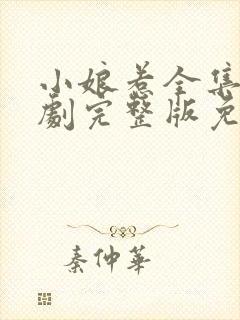 小娘惹全集
劇完整版免
秦仲華